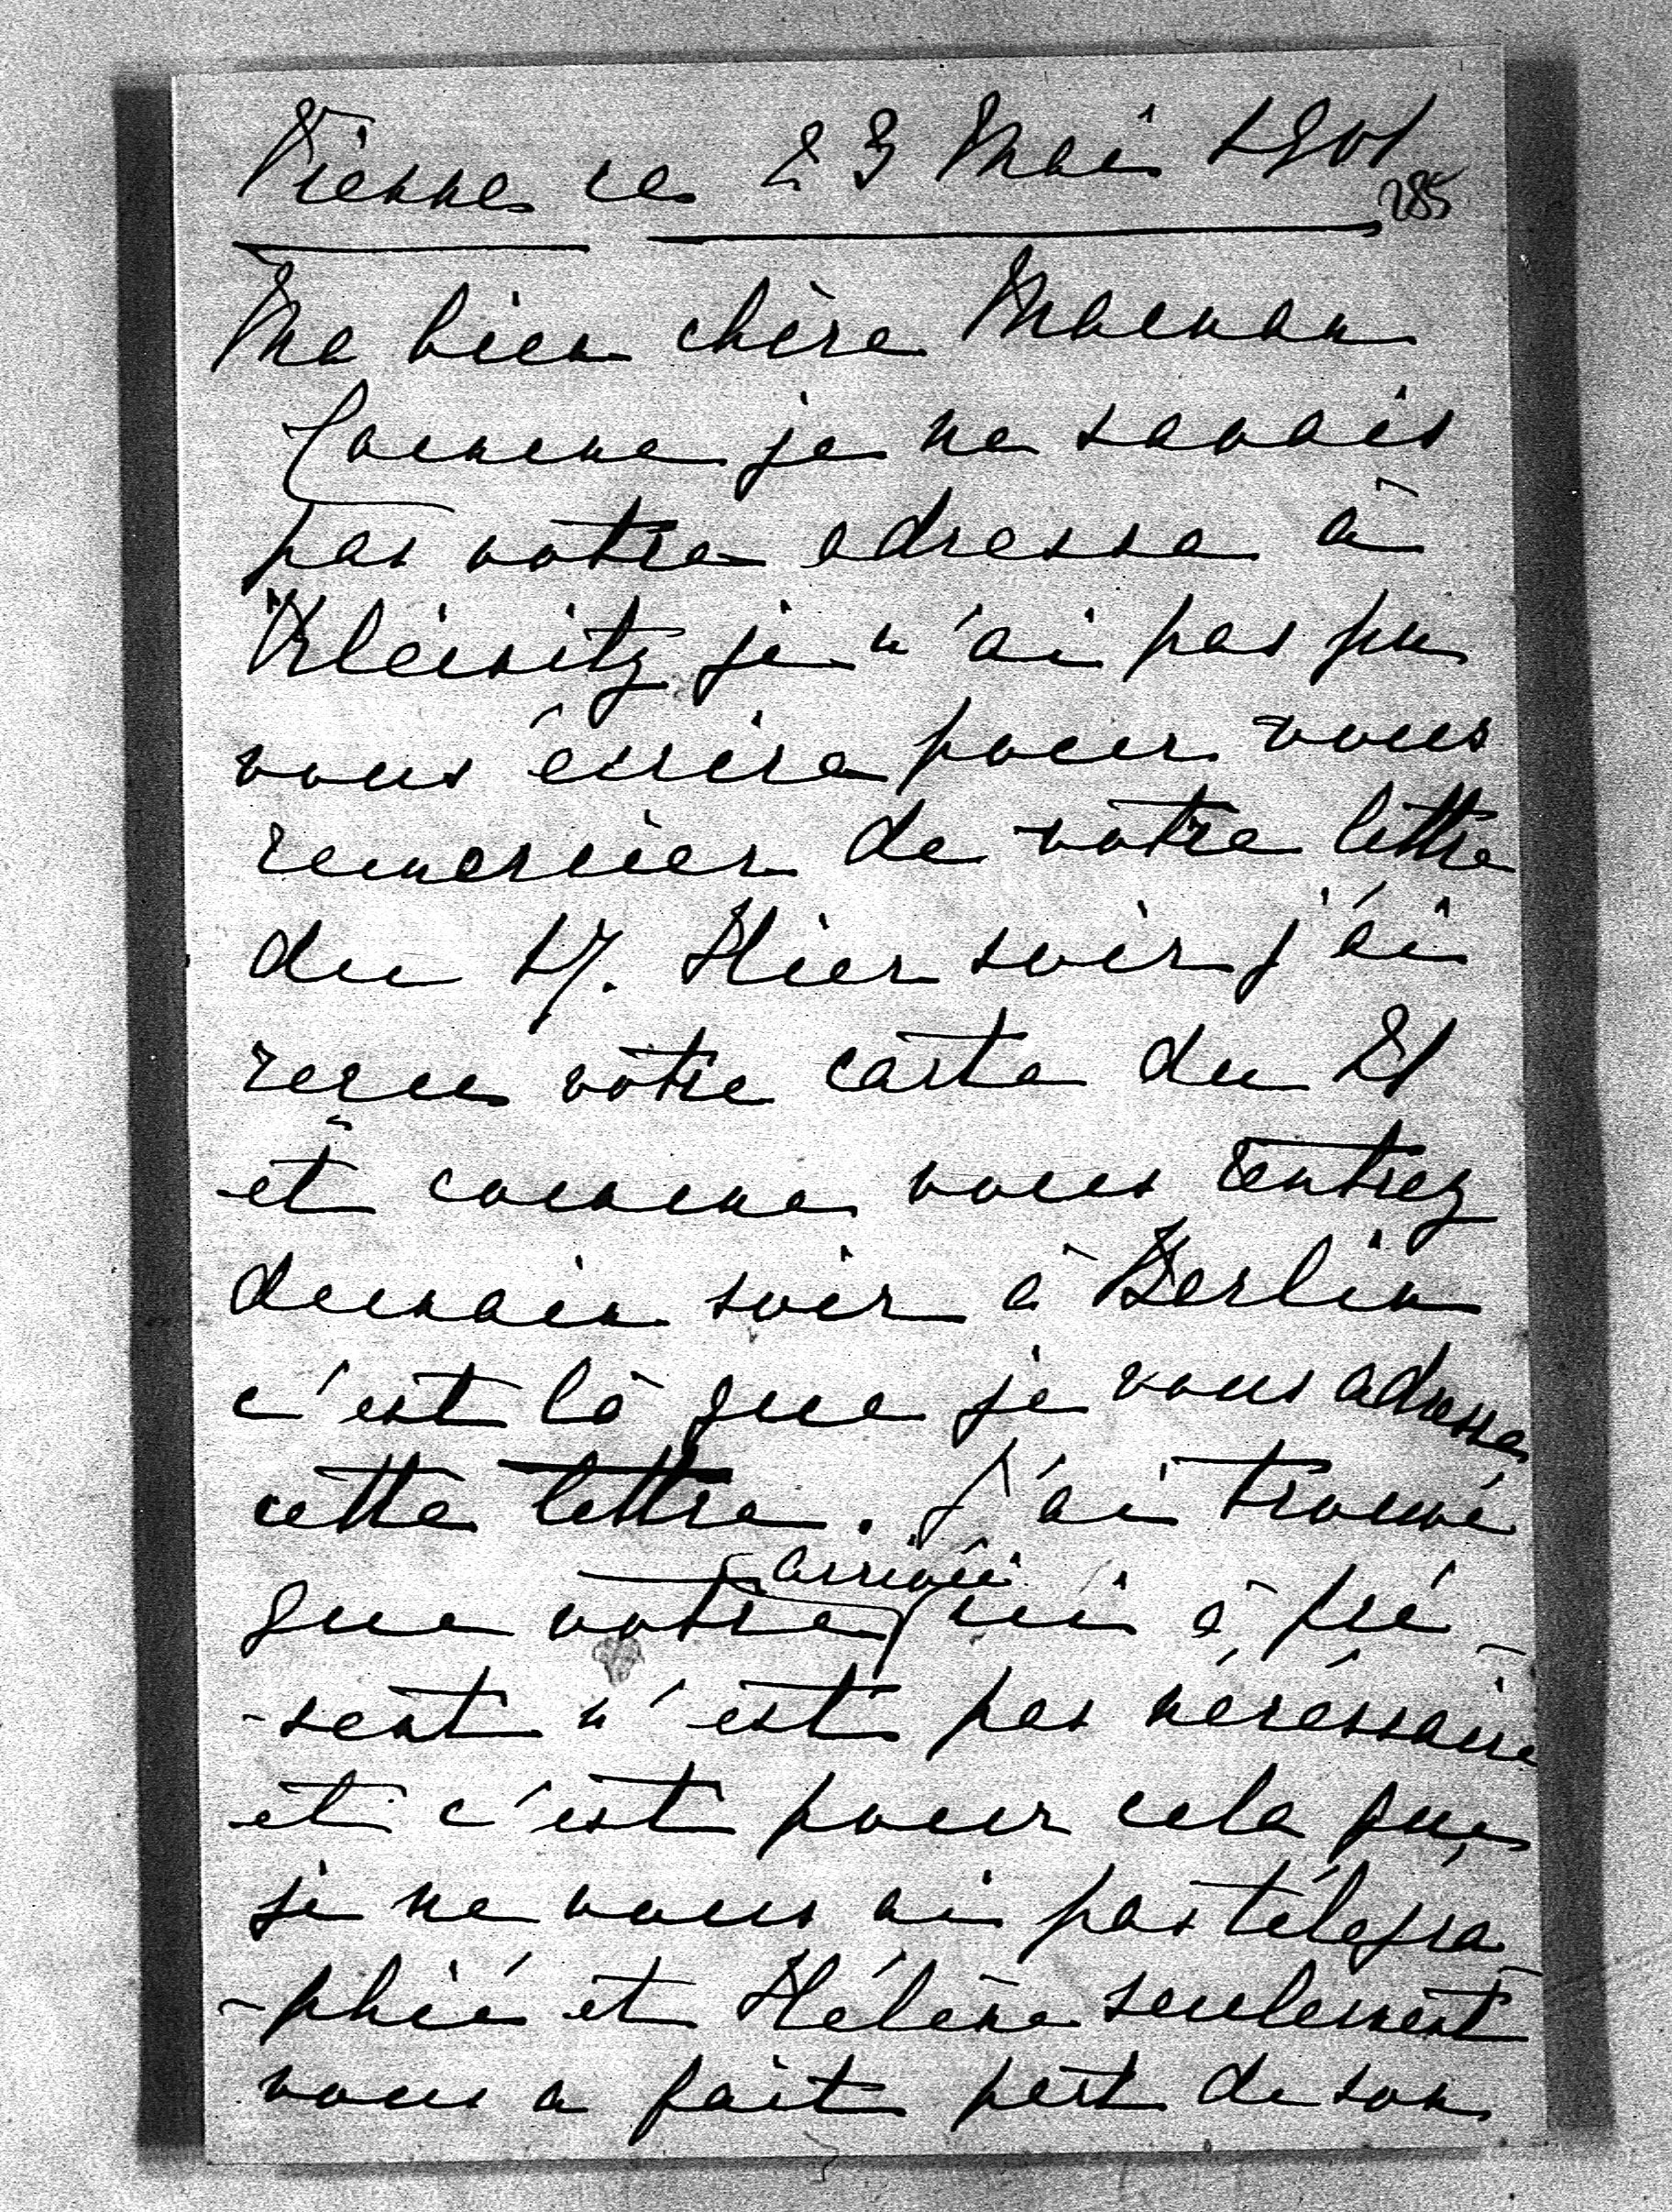 Vienne ce 23 Mai 1901
285
Ma bien chère Maman
Comme je ne savais
pas votre adresse à
je n'ai pas pu
vous écrire pour vous
remercier de votre lettre
du 17. Hier soir j'ai
reçu votre carte du 21
et comme vous rentrez
demain soir à Berlin
c'est là que je vous adresse
cette lettre. J'ai trouvé
arrivée
que votre ici à pré-
-sent n'est pas nécéssaire
et c'est pour cela que
je ne vous ai pas télégra-
-phié et Hélène seulement
vous a fait part de son